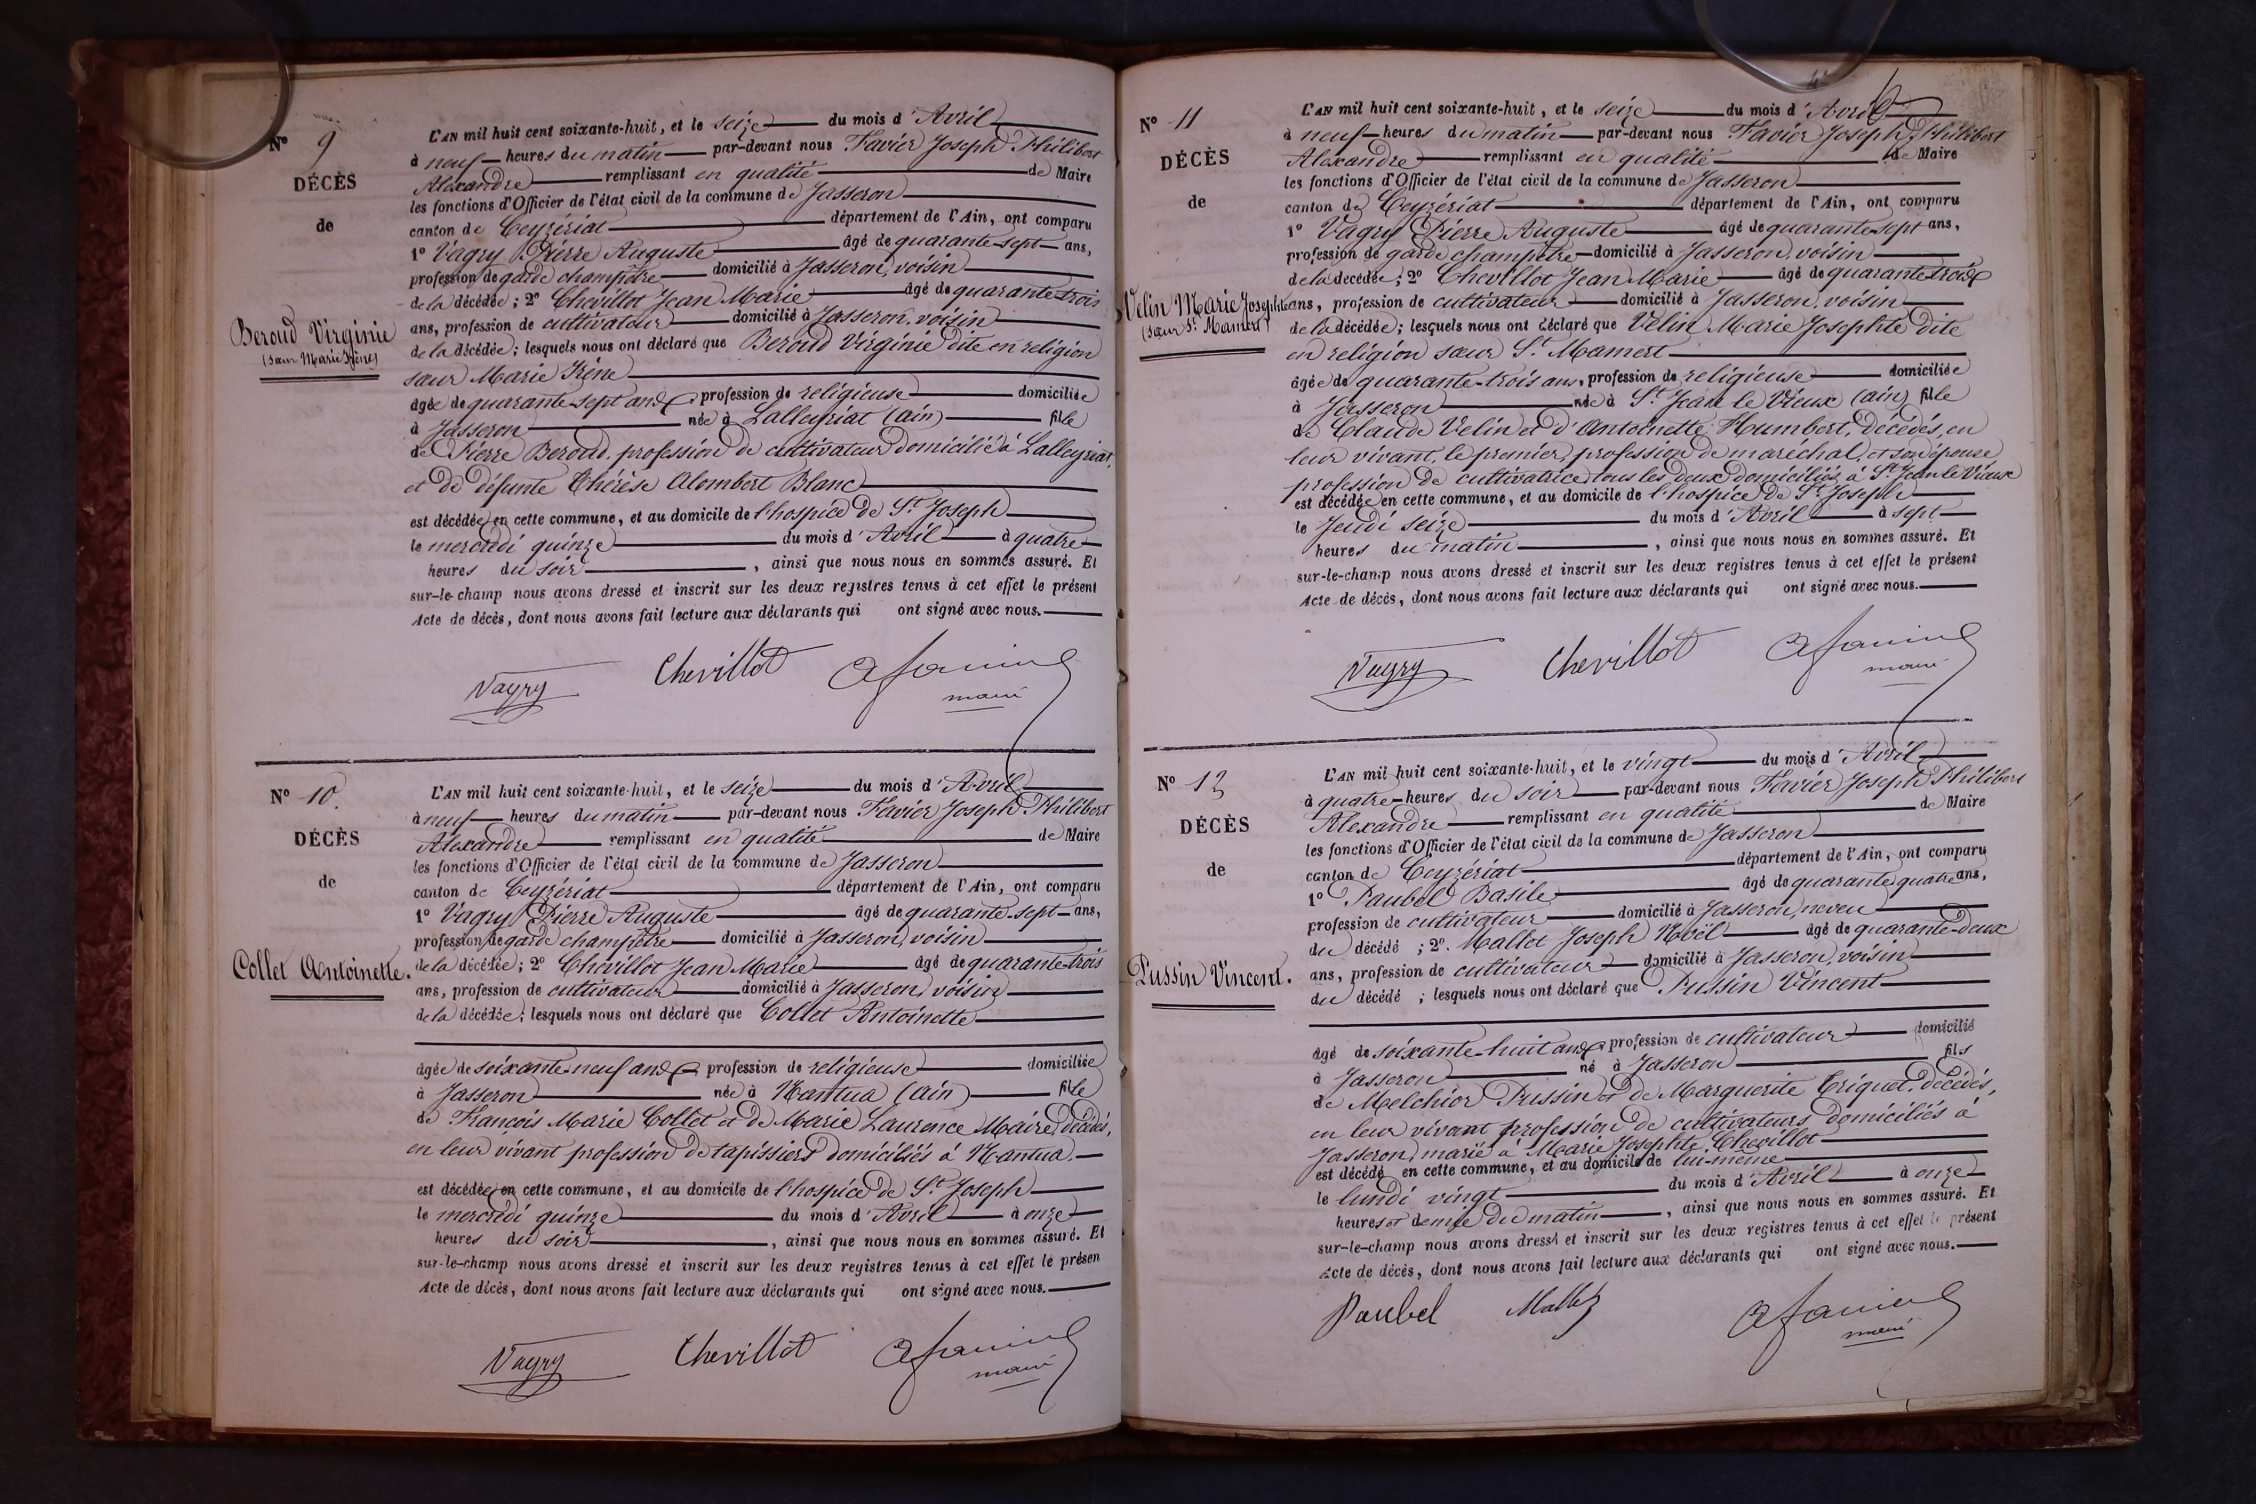 Nº 9
DÉCÈS
de
Beroud Virginie
(Sœur Marie Irène)
L'AN mil huit cent soixante-huit, et le seize du mois d'Avril
à neuf heures du matin par-devant nous Favier Joseph Philibert
Alexandre remplissant en qualité de Maire
les fonctions d'Officier de l'état civil de la commune de Jasseron
canton de Ceyzériat département de l'Ain, ont comparu
1º Vagry Pierre Auguste âgé de quarante-sept ans,
profession de garde champêtre domicilié à Jasseron, voisin
de la décédée; 2º Chevillot Jean Marie âgé de quarante-trois
ans, profession de cultivateur domicilié à Jasseron, voisin
de la décédée; lesquels nous ont déclaré que Beroud Virginie dite en religion
sœur Marie Irène
âgée de quarante-sept ans, profession de religieuse domiciliée
à Jasseron née à Lalleyriat (ain) fille
de Pierre Beroud, profession de cultivateur domicilié à Lalleyriat,
et de défunte Thérèse Alombert Blanc
est décédée en cette commune, et au domicile de l'hospice de St Joseph
le mercredi quinze du mois d'Avril à quatre
heures du soir, ainsi que nous nous en sommes assuré. Et
sur-le-champ nous avons dressé et inscrit sur les deux registres tenus à cet effet le présent
Acte de décès, dont nous avons fait lecture aux déclarants qui ont signé avec nous.
Vagry Chevillot
maire
Nº 10.
DÉCÈS
de
Collet Antoinette.
L'AN mil huit cent soixante-huit, et le seize du mois d'Avril
à neuf heures du matin par-devant nous Favier Joseph Philibert
Alexandre remplissant en qualité de Maire
les fonctions d'Officier de l'état civil de la commune de Jasseron
canton de Ceyzériat département de l'Ain, ont comparu
1º Vagry Pierre Auguste âgé de quarante-sept ans,
profession de garde champêtre domicilié à Jasseron, voisin
de la décédée; 2º Chevillot Jean Marie âgé de quarante-trois
ans, profession de cultivateur domicilié à Jasseron, voisin
de la décédée; lesquels nous ont déclaré que Collet Antoinette
âgée de soixante-neuf ans, profession de religieuse domiciliée
à Jasseron née à Nantua (ain) fille
de François Marie Collet et de Marie Laurence Maire, décédés,
en leur vivant profession de tapissiers domiciliés à Nantua.
est décédée en cette commune, et au domicile de l'hospice de St Joseph
le mercredi quinze du mois d'Avril à onze
heures du soir, ainsi que nous nous en sommes assuré. Et
sur-le-champ nous avons dressé et inscrit sur les deux registres tenus à cet effet le présen
Acte de décès, dont nous avons fait lecture aux déclarants qui ont signé avec nous.
Vagry Chevillot
maire
Nº 11
DÉCÈS
de
Velin Marie Josephte
(sœur St Mamert)
L'AN mil huit cent soixante-huit, et le seize du mois d'Avril
à neuf heures du matin par-devant nous Favier Joseph Philibert
Alexandre remplissant en qualité de Maire
les fonctions d'Officier de l'état civil de la commune de Jasseron
canton de Ceyzériat département de l'Ain, ont comparu
1º Vagry Pierre Auguste âgé de quarante-sept ans,
profession de garde champêtre domicilié à Jasseron, voisin
de la décédée; 2º Chevillot Jean Marie âgé de quarante-trois
ans, profession de cultivateur domicilié à Jasseron, voisin
de la décédée; lesquels nous ont déclaré que Velin Marie Josephte dite
en religion sœur St. Mamert
âgée de quarante-trois ans, profession de religieuse domiciliée
à Jasseron née à St Jean le Vieux (ain) fille
de Claude Velin et d'Antoinette Humbert, décédés, en
leur vivant, le premier, profession de maréchal, et son épouse
profession de cultivatrice, tous les deux domiciliés à St Jean le Vieux
est décédée en cette commune, et au domicile de l'hospice de St Joseph
le Jeudi seize du mois d'Avril à sept
heures du matin, ainsi que nous nous en sommes assuré. Et
sur-le-champ nous avons dressé et inscrit sur les deux registres tenus à cet effet le présent
Acte de décès, dont nous avons fait lecture aux déclarants qui ont signé avec nous.
Vagry Chevillot
maire
Nº 12
DÉCÈS
de
Pussin Vincent.
L'AN mil huit cent soixante-huit, et le vingt du mois d'Avril
à quatre heures du soir par-devant nous Favier Joseph Philibert
Alexandre remplissant en qualité de Maire
les fonctions d'Officier de l'état civil de la commune de Jasseron
canton de Ceyzériat département de l'Ain, ont comparu
1º Paubel Basile âgé de quarante quatre ans,
profession de cultivateur domicilié à Jasseron, neveu
du décédé; 2º. Mallet Joseph Noël âgé de quarante-deux
ans, profession de cultivateur domicilié à Jasseron, voisin
du décédé; lesquels nous ont déclaré que Pussin Vincent
âgé de soixante-huit ans, profession de cultivateur domicilié
à Jasseron né à Jasseron fils
de Melchior Pussin et de Marguerite Criquet, décédés,
en leur vivant profession de cultivateurs domiciliés à
Jasseron, marié à Marie Josephte Chevillot
est décédé en cette commune, et au domicile de lui-même
le lundi vingt du mois d'Avril à onze
heures et demie du matin, ainsi que nous nous en sommes assuré. Et
sur-le-champ nous avons dressé et inscrit sur les deux registres tenus à cet effet le présent
Acte de décès, dont nous avons fait lecture aux déclarants qui ont signé avec nous.
Paubel Mallet
maire